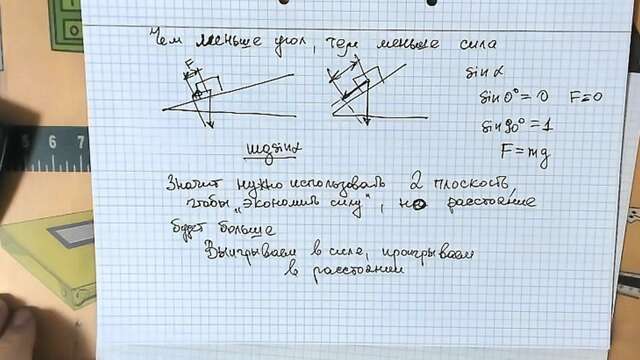 Чем меньше угол, тем меньше сила
F
sin α
sin 0° = 0 F=0
sin 90° = 1
F = mg
mg sin α
Значит нужно использовать 2 плоскость,
чтобы „экономить силу", но расстояние
будет больше
Выигрываем в силе, проигрываем
в расстоянии
5 6 7